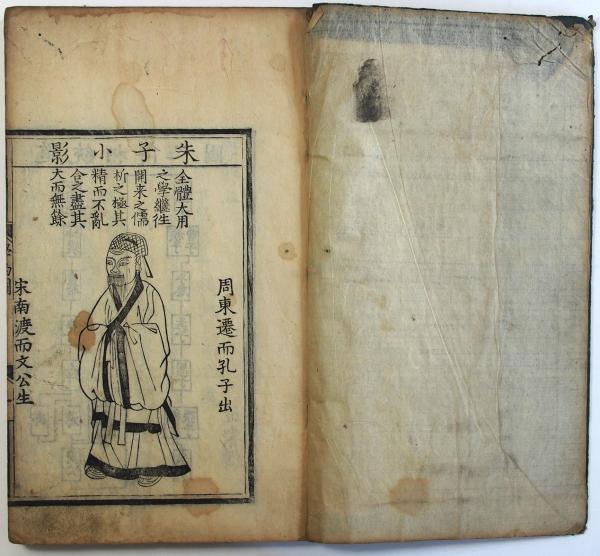 朱子小影
周東遷而孔子出
全體大用
之學繼往
開来之儒
析之極其
精而不亂
合之盡其
大而無餘
宋南渡而文公生